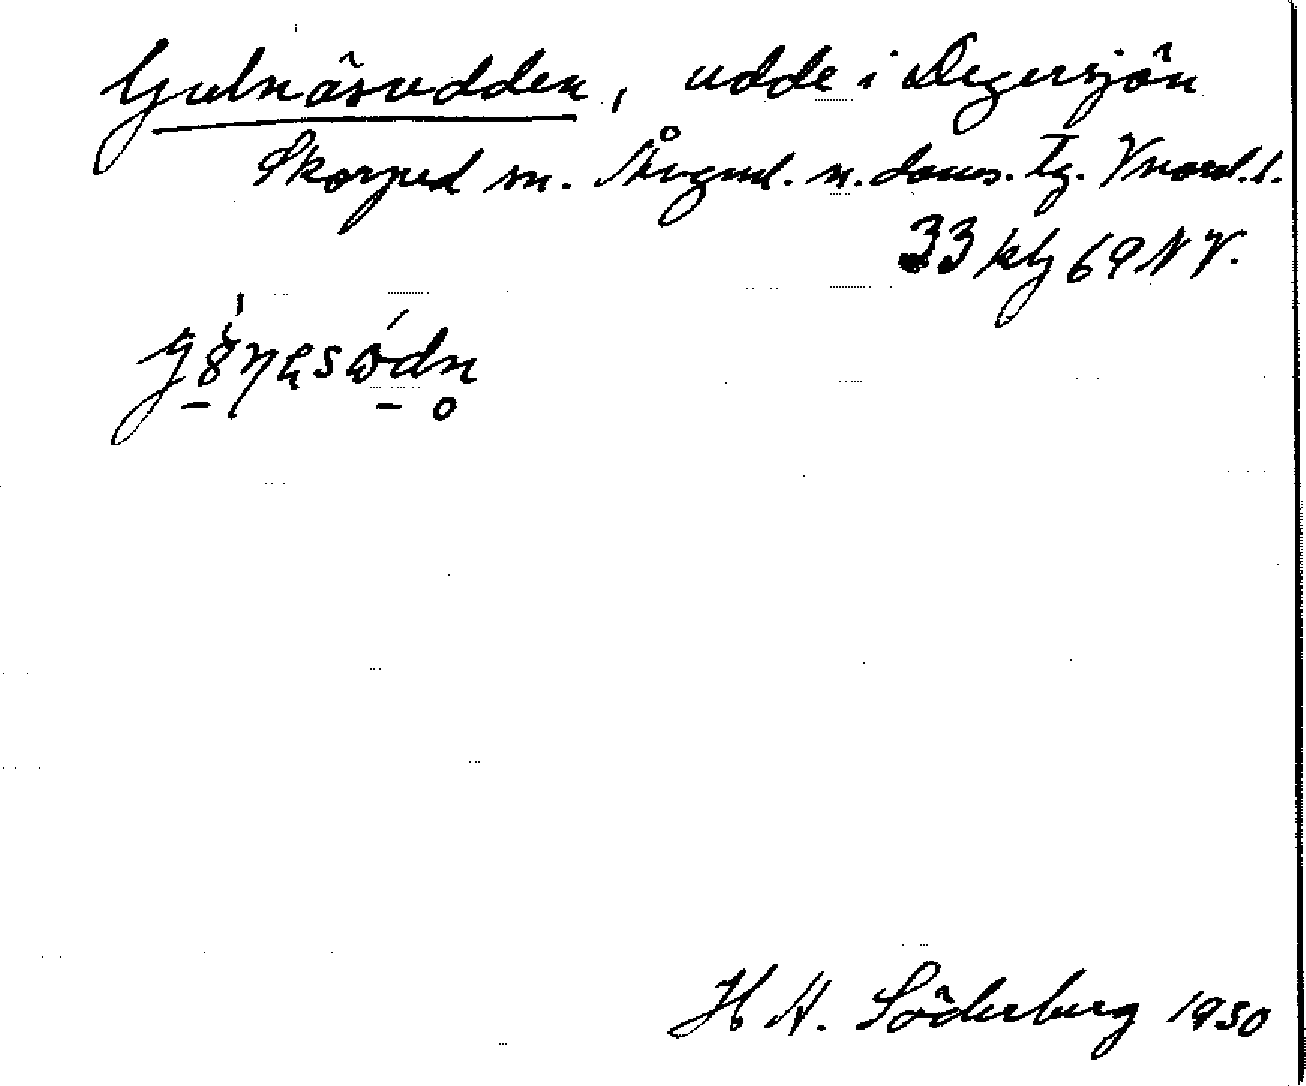 Gulnäsudden, udde i Degersjön
Skorped sn. Ångml. n. doms. tg. Vnorrl. l.
33 kbl 69 NV.
H H. Söderberg 1950